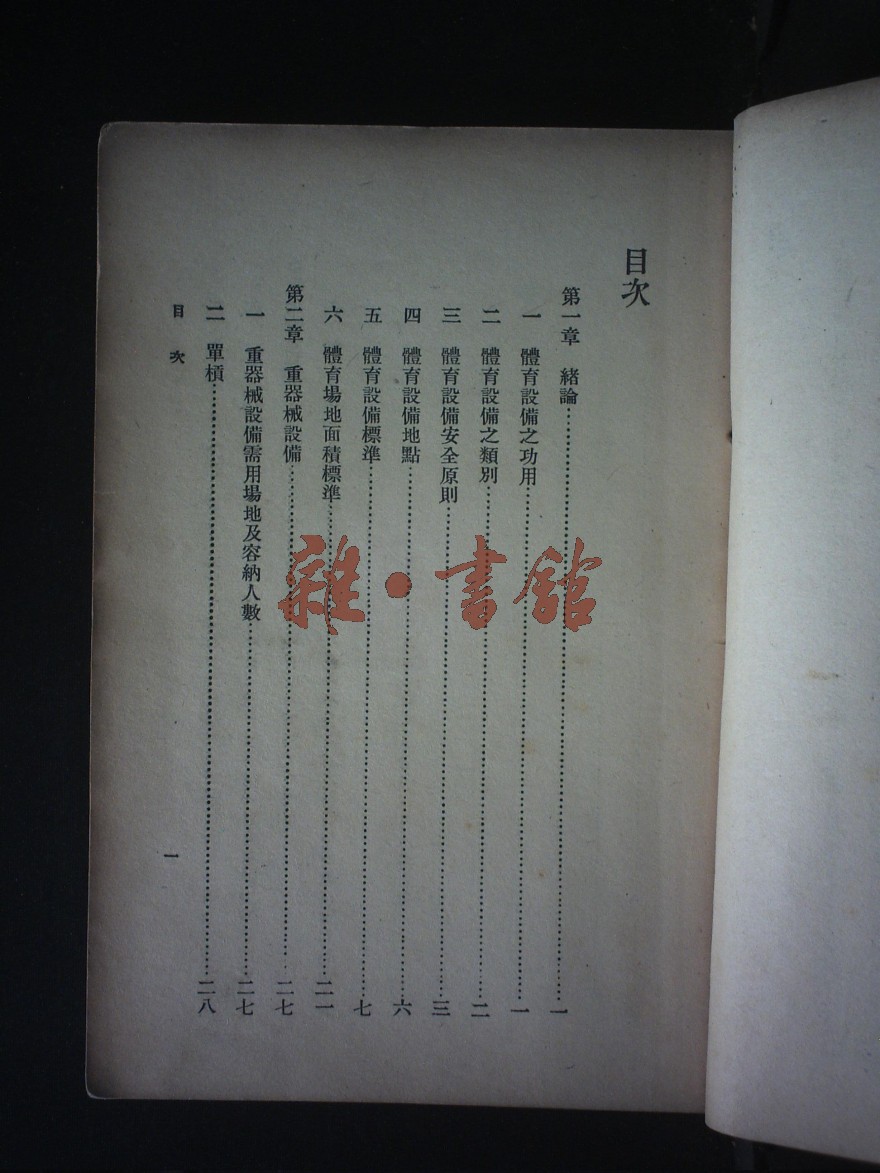 目次
第一章 緒論……一
一 體育設備之功用……一
二 體育設備之類別……二
三 體育設備安全原則……三
四 體育設備地點……六
五 體育設備標準……七
六 體育場地面積標準……二一
第二章 重器械設備……二七
一 重器械設備需用場地及容納人數……二七
二 單槓……二八
目次 一
雜·書館